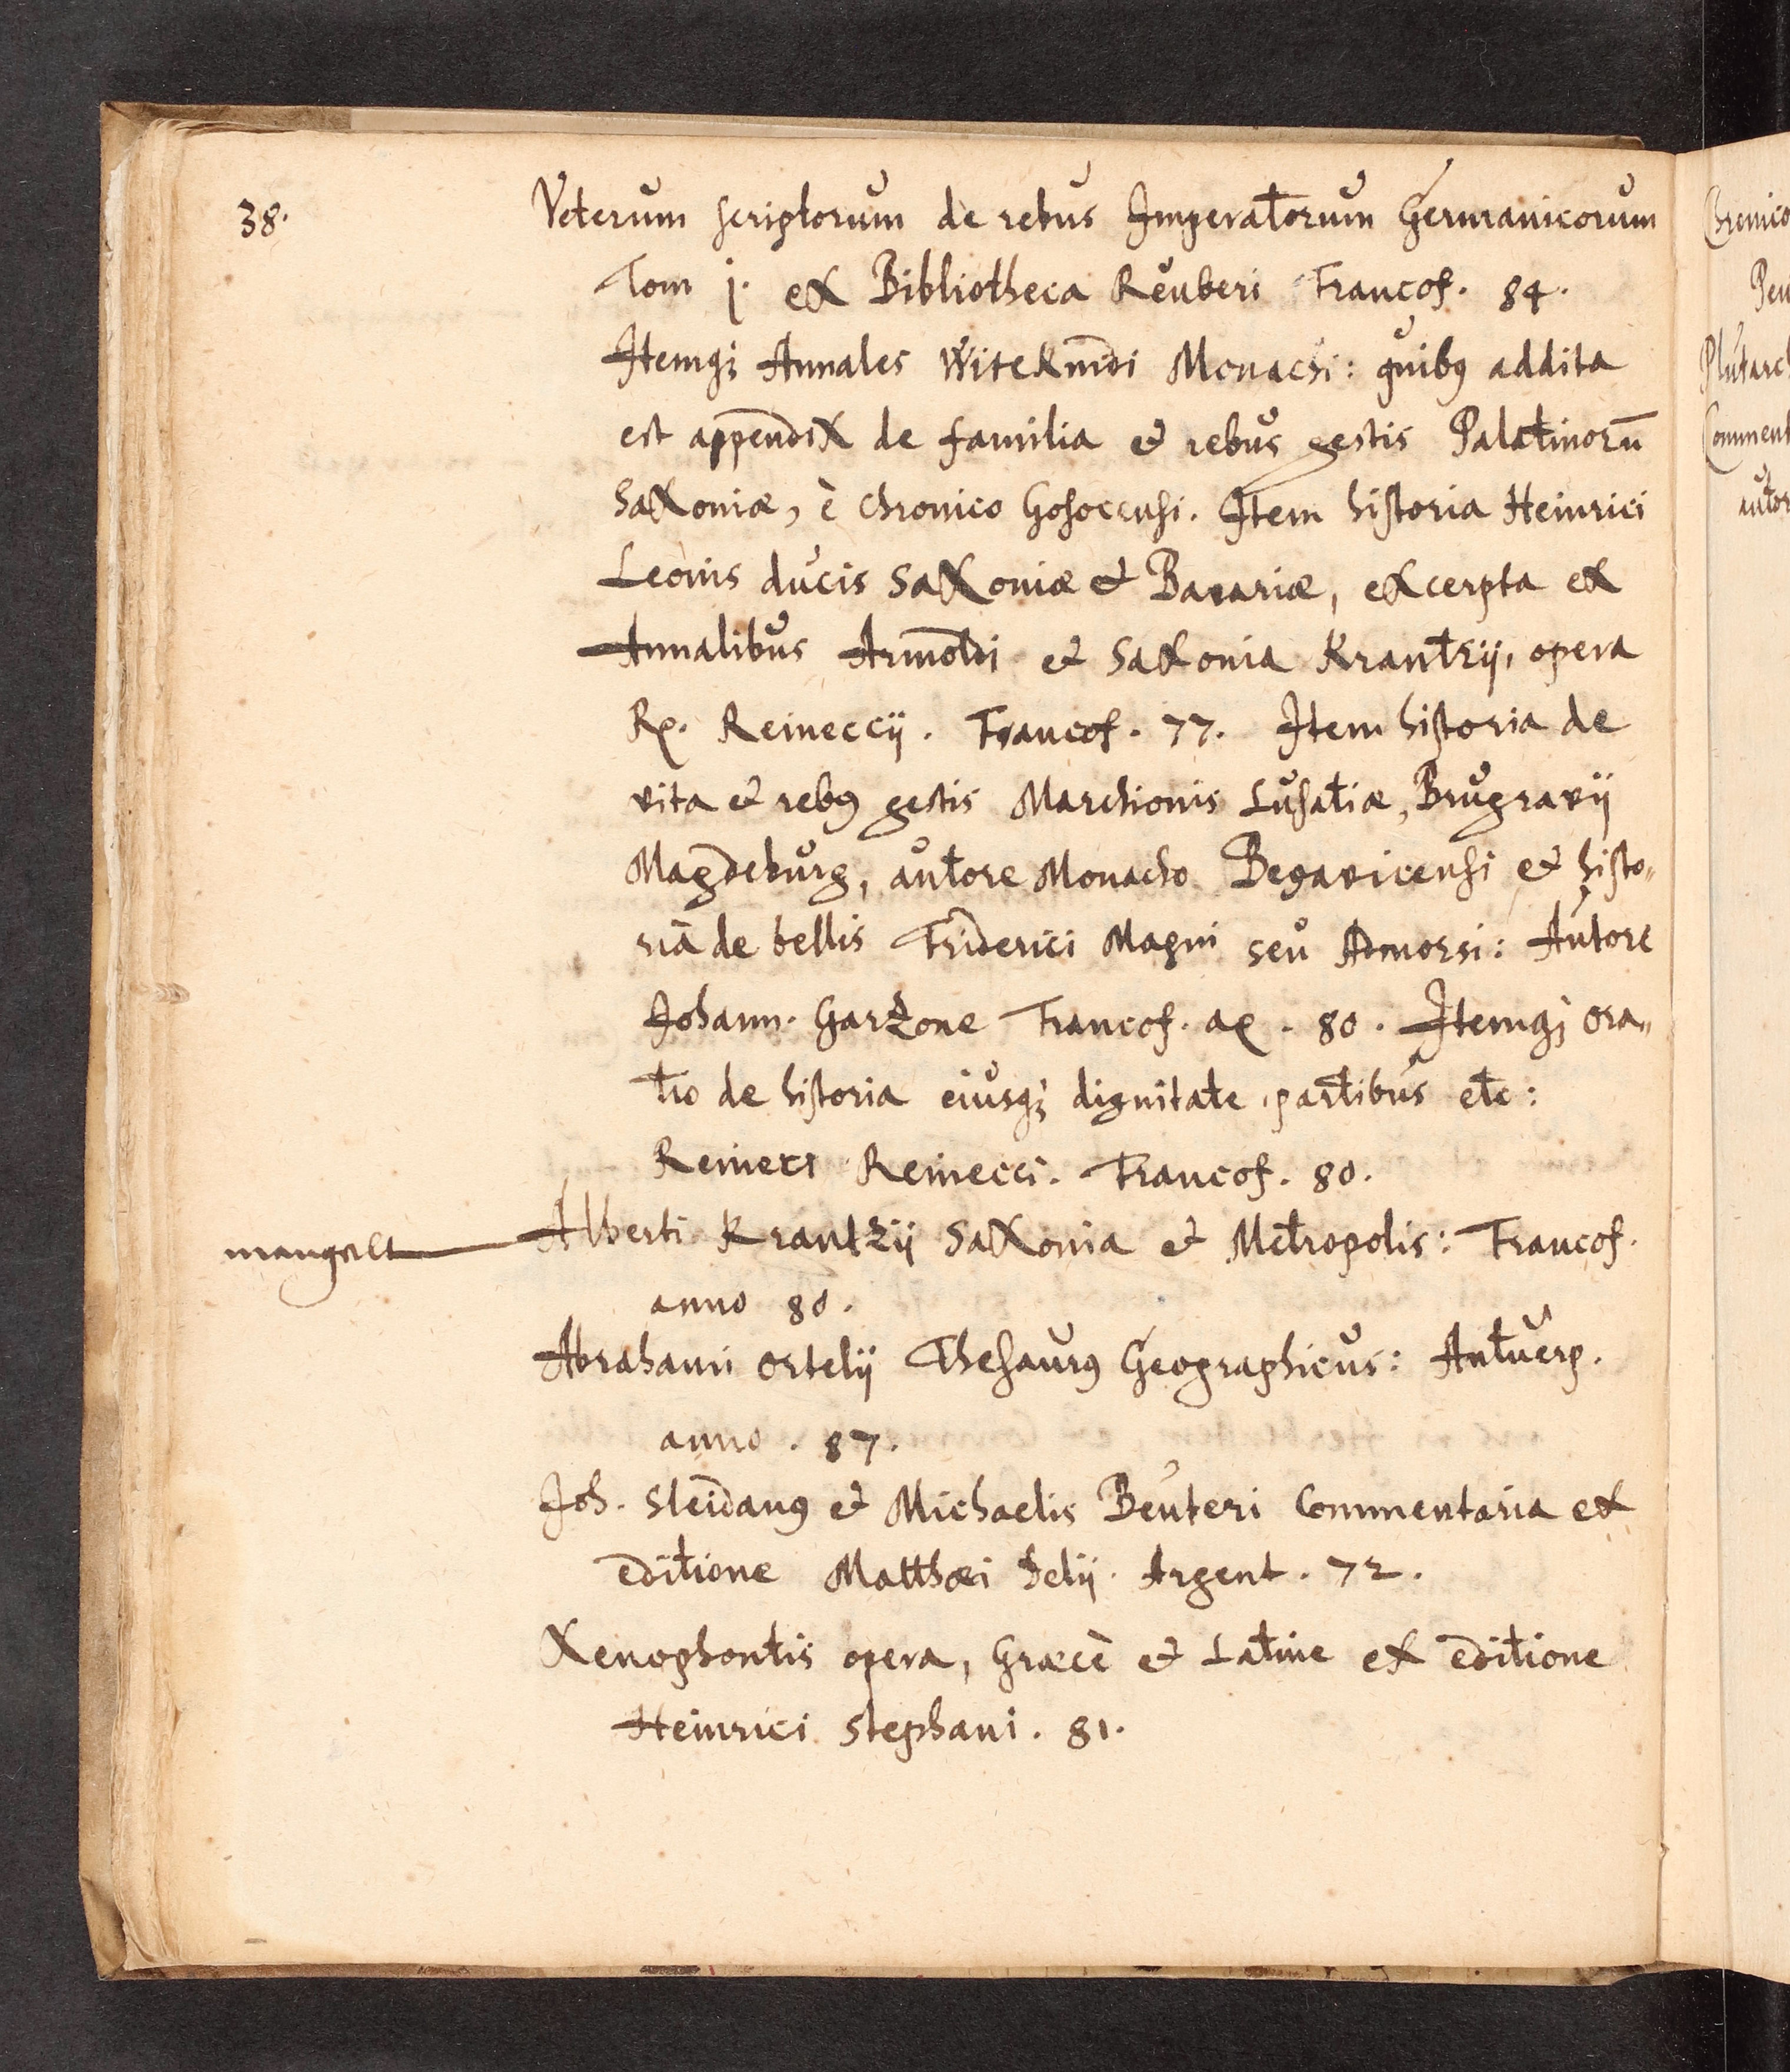 38.
Veterum scriptorum de rebus Imperatorum Germanicorum
Tom j. ex Bibliotheca Reuberi Francof. 84.
Itemq; Annales Witekindi Monachi: quibꝰ addita
est appendix de familia et rebus gestis Palatinorū
Saxoniæ, è Chronico Gosoccensi. Item historia Heinrici
Leonis ducis Saxoniæ et Bavariæ, excerpta ex
Annalibus Arnoldi et Saxonia Krantzij, opera
R. Reineccij. Francof. 77. Item historia de
vita et rebꝰ gestis Marchionis Lusatiæ, Brugravij
Magdeburg, autore Monacho Begavicensi et histo„
riā de bellis Friderici Magni seu Admorsi: Autore
Johann. Garzone Francof. 80. Itemq; ora„
tio de historia eiusq; dignitate, partibus etc:
Reineri Reinecci. Francof. 80.
mangelt
Alberti Krantzij Saxonia et Metropolis: Francof.
anno 80.
Abrahami Ortelij Thesaurꝰ Geographicus: Antuerp.
anno . 87.
Joh. Sleidanꝰ et Michaelis Beuteri Commentaria ex
editione Matthæi Delij. Argent. 72.
Xenophontis opera, Græcè et Latine ex editione
Heinrici Stephani. 81.
Chronico
Plutarch
Comment
autor